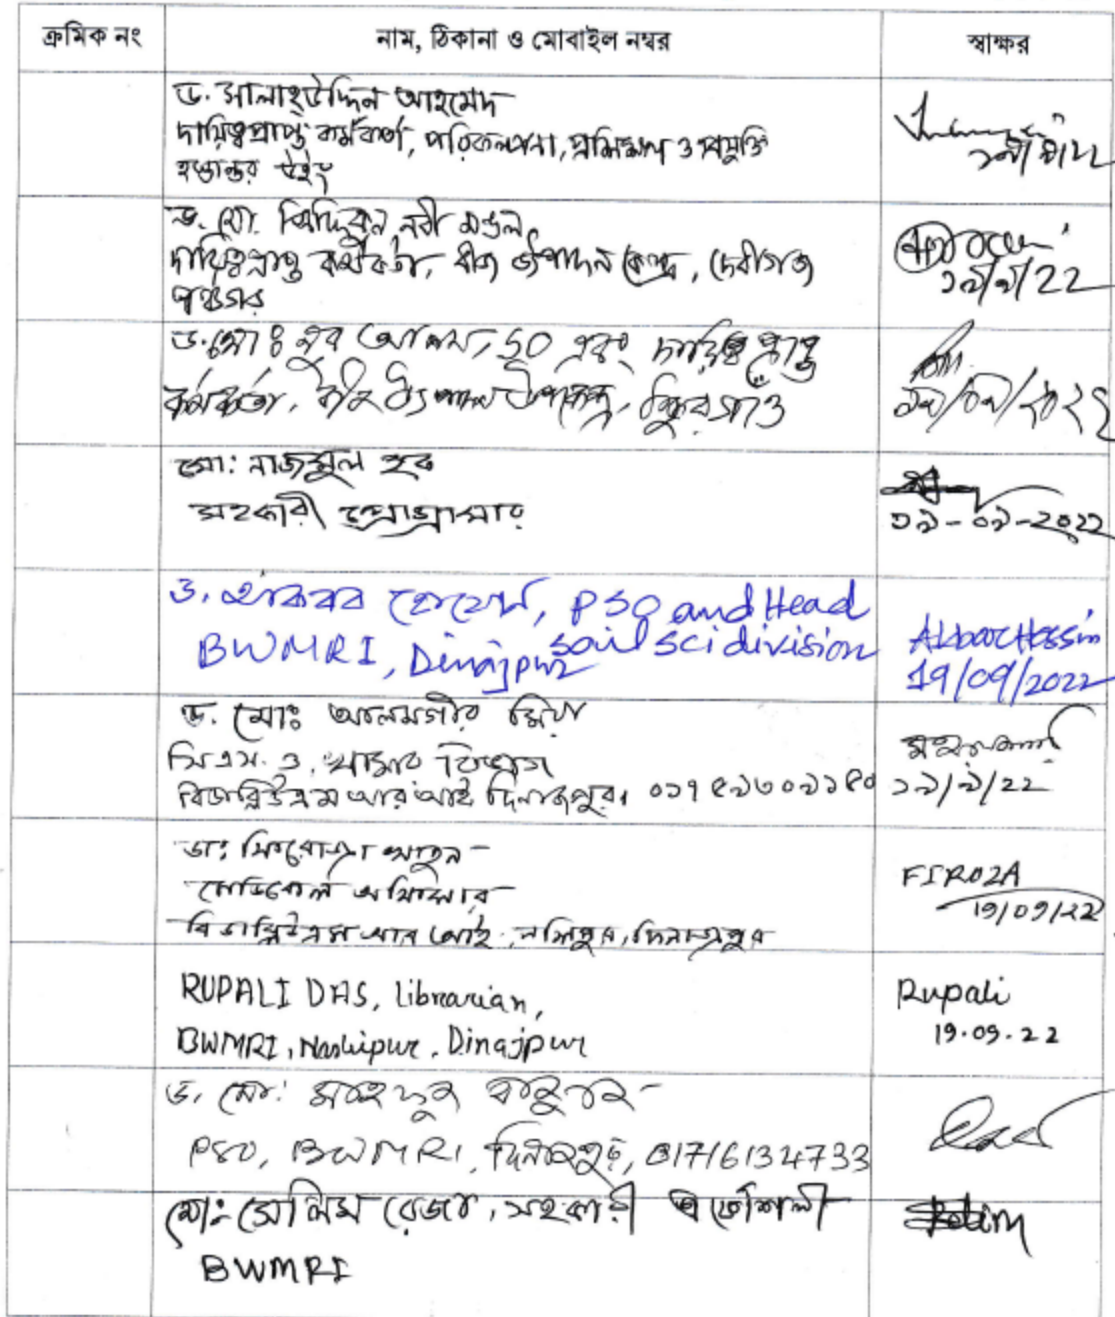 ক্রমিক নং নাম, ঠিকানা ও মোবাইল নম্বর স্বাক্ষর
ড. সালাহ্উদ্দিন আহমেদ
দায়িত্বপ্রাপ্ত কর্মকর্তা, পরিকল্পনা, প্রশিক্ষণ ও প্রযুক্তি
হস্তান্তর উইং
১৯/৯/২২
ড. মো. সিদ্দিকুন নবী মণ্ডল,
দায়িত্বপ্রাপ্ত কর্মকর্তা, বীজ উৎপাদন কেন্দ্র, দেবীগঞ্জ
পঞ্চগড়
১৯/৯/২২
ড. মোঃ নুর আলম, SO এবং দায়িত্ব প্রাপ্ত
কর্মকর্তা, বীজ উৎপাদন উপকেন্দ্র, ঠাকুরগাঁও
১৯/০৯/২০২২
মো: নাজমুল হক
সহকারী প্রোগ্রামার
১৯-০৯-২০২২
ড. আকবর হোসেন, PSO and Head
soil sci division
BWMRI, Dinajpur
Akbar Hossin
19/09/2022
ড. মোঃ আলমগীর মিয়া
সিএস.ও, খামার বিভাগ
বিডাব্লিউএমআরআই দিনাজপুর। ০১৭৫৯৬০৯১৪০ ১৯/৯/২২
ডা: ফিরোজা খাতুন
মেডিকেল অফিসার
বিডাব্লিউএমআরআই, নশিপুর, দিনাজপুর
FIROZA
19/09/22
RUPALI DAS, Librarian,
BWMRI, Nashipur, Dinajpur
Rupali
19.09.22
ড. মো:
PSO, BWMRI, দিনাজপুর, 01716134733
মো: সেলিম রেজা, সহকারী প্রকৌশলী
BWMRI
Selim